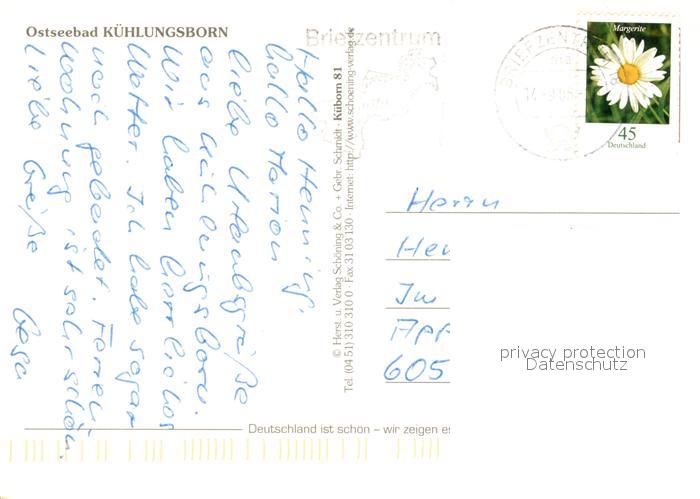 Ostseebad KÜHLUNGSBORN
Hallo Henning,
hallo Marion
liebe Urlaubsgrüße
aus Kühlungsborn.
Wir haben herrliches
Wetter. Ich habe sogar
noch gebadet. Ferien
wohnung ist sehr schön.
Liebe Grüße
© Herst. u. Verlag Schöning & Co. + Gebr. Schmidt · Küborn 81
Tel. (04 51) 310 310 0 · Fax 31 03 130 · Internet: http://www.schoening-verlag.de
Briefzentrum
BRIEFZENTR
Margerite
45
Deutschland
Herrn
Hei
Im
App
605
privacy protection
Datenschutz
Deutschland ist schön – wir zeigen es